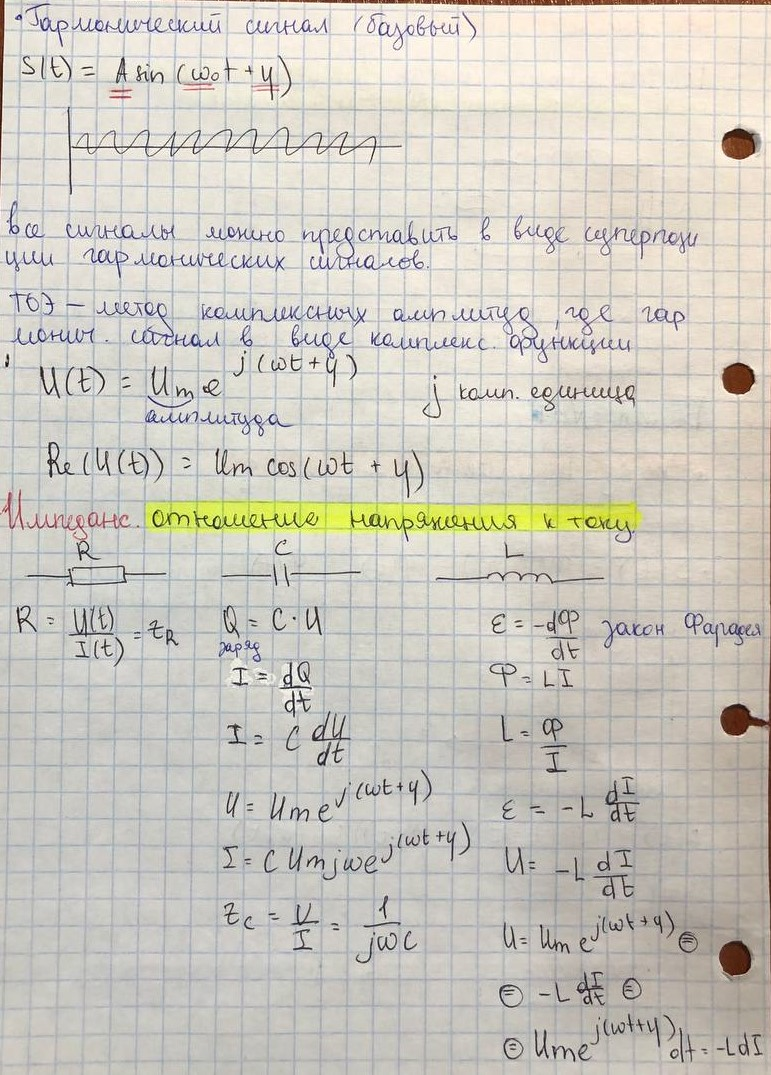 Гармонический сигнал (базовый)
S(t) = A sin (ω₀t + φ)
все сигналы можно представить в виде суперпози
ции гармонических сигналов.
ТОЭ – метод комплексных амплитуд, где гар
монич. сигнал в виде комплекс. функции
U(t) = Um e^j(ωt + φ)
j комп. единица
амплитуда
Re(U(t)) = Um cos(ωt + φ)
Импеданс. отношение напряжения к току.
R
C
L
R = U(t)/I(t) = zR
Q = C · U
заряд
I = dQ/dt
I = C dU/dt
U = Um e^j(ωt+φ)
I = C Um jω e^j(ωt+φ)
zC = U/I = 1/jωC
ε = -dФ/dt закон Фарадея
Ф = LI
L = Ф/I
ε = -L dI/dt
U = -L dI/dt
U = Um e^j(ωt+φ) ⊜
⊜ -L dI/dt ⊜
⊜ Um e^j(ωt+φ) dt = -LdI